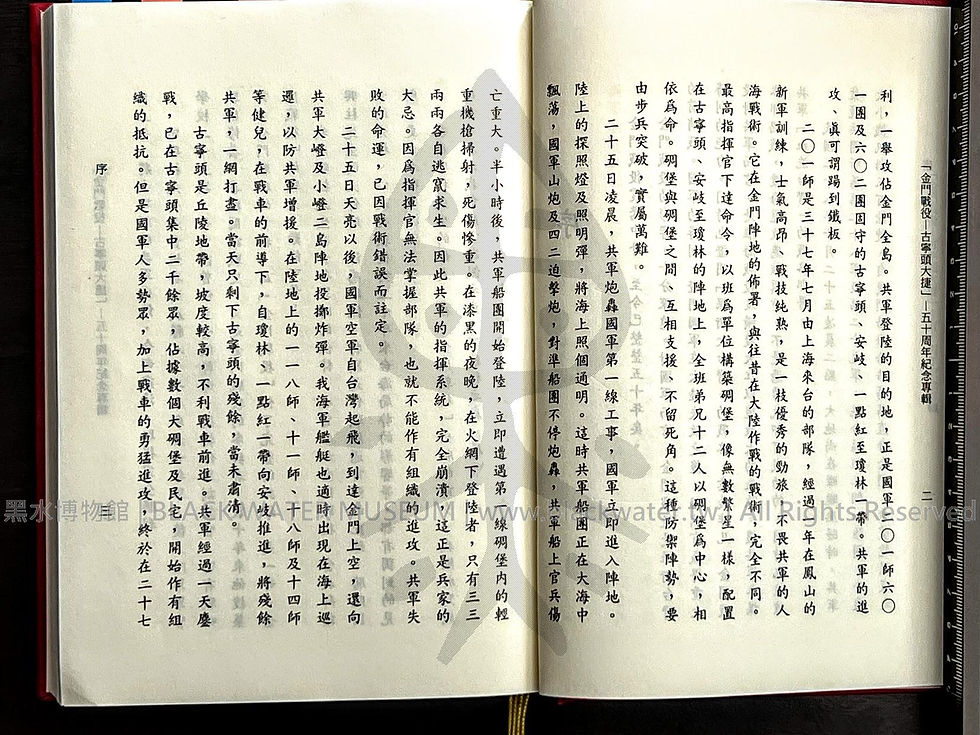 「金門戰役—古寧頭大捷」—五十周年紀念專輯
二
利,一舉攻佔金門全島。共軍登陸的目的地,正是國軍二〇一師六〇
一團及六〇二團固守的古寧頭、安岐、一點紅至瓊林一帶。共軍的進
攻、真可謂踢到鐵板。
二〇一師是三十七年七月由上海來台的部隊,經過一年在鳳山的
新軍訓練,士氣高昂、戰技純熟,是一枝優秀的勁旅,不畏共軍的人
海戰術。它在金門陣地的佈署,與往昔在大陸作戰的戰術,完全不同。
最高指揮官下達命令,以班為單位構築碉堡,像無數繁星一樣,配置
在古寧頭、安岐至瓊林的陣地上,全班弟兄十二人以碉堡為中心,相
依為命。碉堡與碉堡之間、互相支援、不留死角。這種防禦陣勢,要
由步兵突破,實屬萬難。
二十五日凌晨,共軍炮轟國軍第一線工事,國軍立即進入陣地。
陸上的探照燈及照明彈,將海上照個通明。這時共軍船團正在大海中
飄蕩,國軍山炮及四二迫擊炮,對準船團不停炮轟,共軍船上官兵傷
亡重大。半小時後,共軍船團開始登陸,立即遭遇第一線碉堡內的輕
重機槍掃射,死傷慘重。在漆黑的夜晚,在火網下登陸者,只有三三
兩兩各自逃竄求生。因此共軍的指揮系統,完全崩潰,這正是兵家的
大忌。因為指揮官無法掌握部隊,也就不能作有組織的進攻。共軍失
敗的命運,已因戰術錯誤而註定。
二十五日天亮以後,國軍空軍自台灣起飛,到達金門上空,還向
共軍大嶝及小嶝二島陣地投擲炸彈。我海軍艦艇也適時出現在海上巡
邏,以防共軍增援。在陸地上的一一八師、十一師、十八師及十四師
等健兒,在戰車的前導下,自瓊林、一點紅一帶向安岐推進,將殘餘
共軍,一網打盡。當天只剩下古寧頭的殘餘,當未肅清。
古寧頭是丘陵地帶,坡度較高,不利戰車前進。共軍經過一天鏖
戰,已在古寧頭集中二千餘眾,佔據數個大碉堡及民宅,開始作有組
織的抵抗。但是國軍人多勢眾,加上戰車的勇猛進攻,終於在二十七
序
三
黑水博物館 | BLACK WATER MUSEUM | www.blackwater.tw | All Rights Reserved